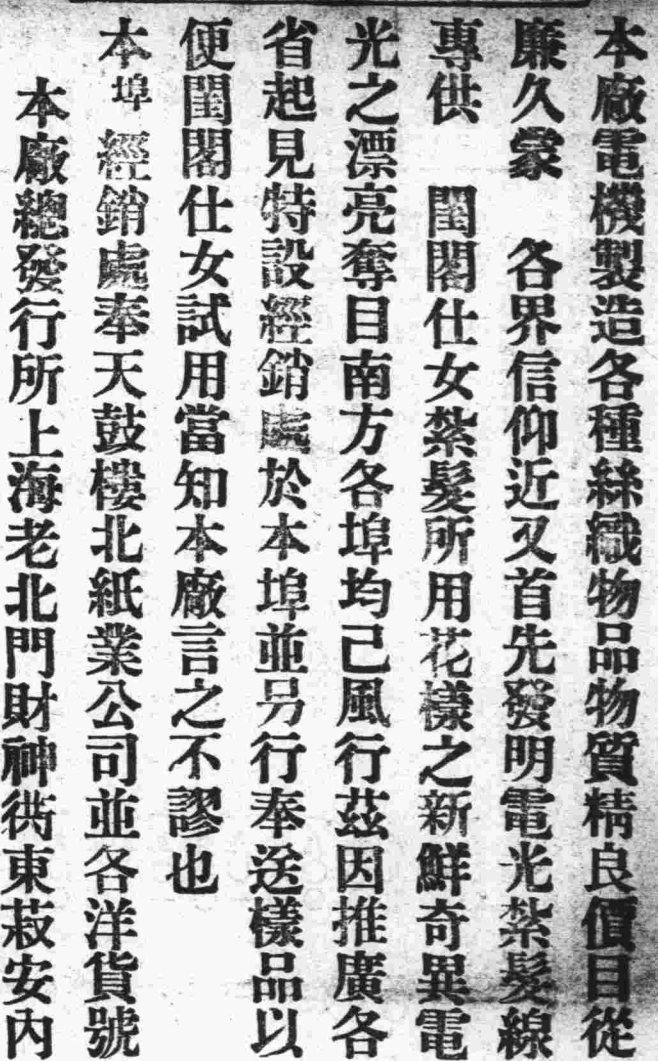 本廠電機製造各種絲織物品物質精良價目從
廉久蒙　各界信仰近又首先發明電光紮髮線
專供　閨閣仕女紮髮所用花樣之新鮮奇異電
光之漂亮奪目南方各埠均已風行茲因推廣各
省起見特設經銷處於本埠並另行奉送樣品以
便閨閣仕女試用當知本廠言之不謬也
本埠　經銷處奉天鼓樓北紙業公司並各洋貨號
本廠總發行所上海老北門財神衖東菽安內